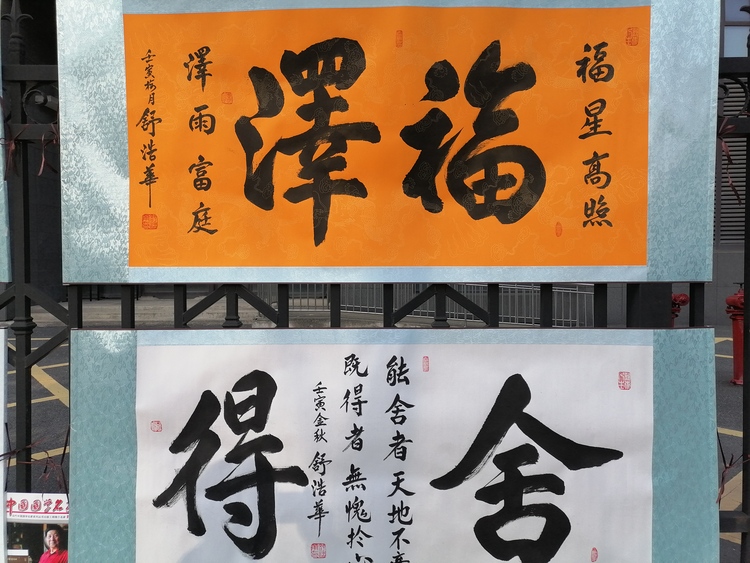 福星高照
福澤
澤雨富庭
壬寅梅月 舒浩華
舍
能舍者天地不
既得者無愧於
壬寅金秋 舒浩華
得
中国国学名